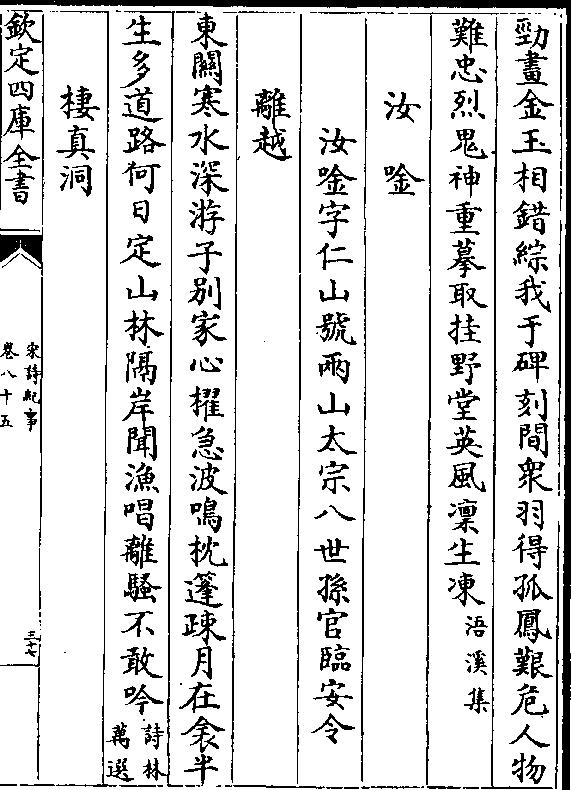 勁畫金玉相錯綜我于碑刻間衆羽得孤鳳艱危人物
難忠烈鬼神重摹取挂野堂英風凛生凍浯溪集
汝唫
汝唫字仁山號兩山太宗八世孫官臨安令
離越
東關寒水深游子别家心櫂急波鳴枕篷疎月在衾半
生多道路何日定山林隔岸聞漁唱離騷不敢吟詩林
萬選
棲真洞
欽定四庫全書
宋詩紀事
卷八十五
三七